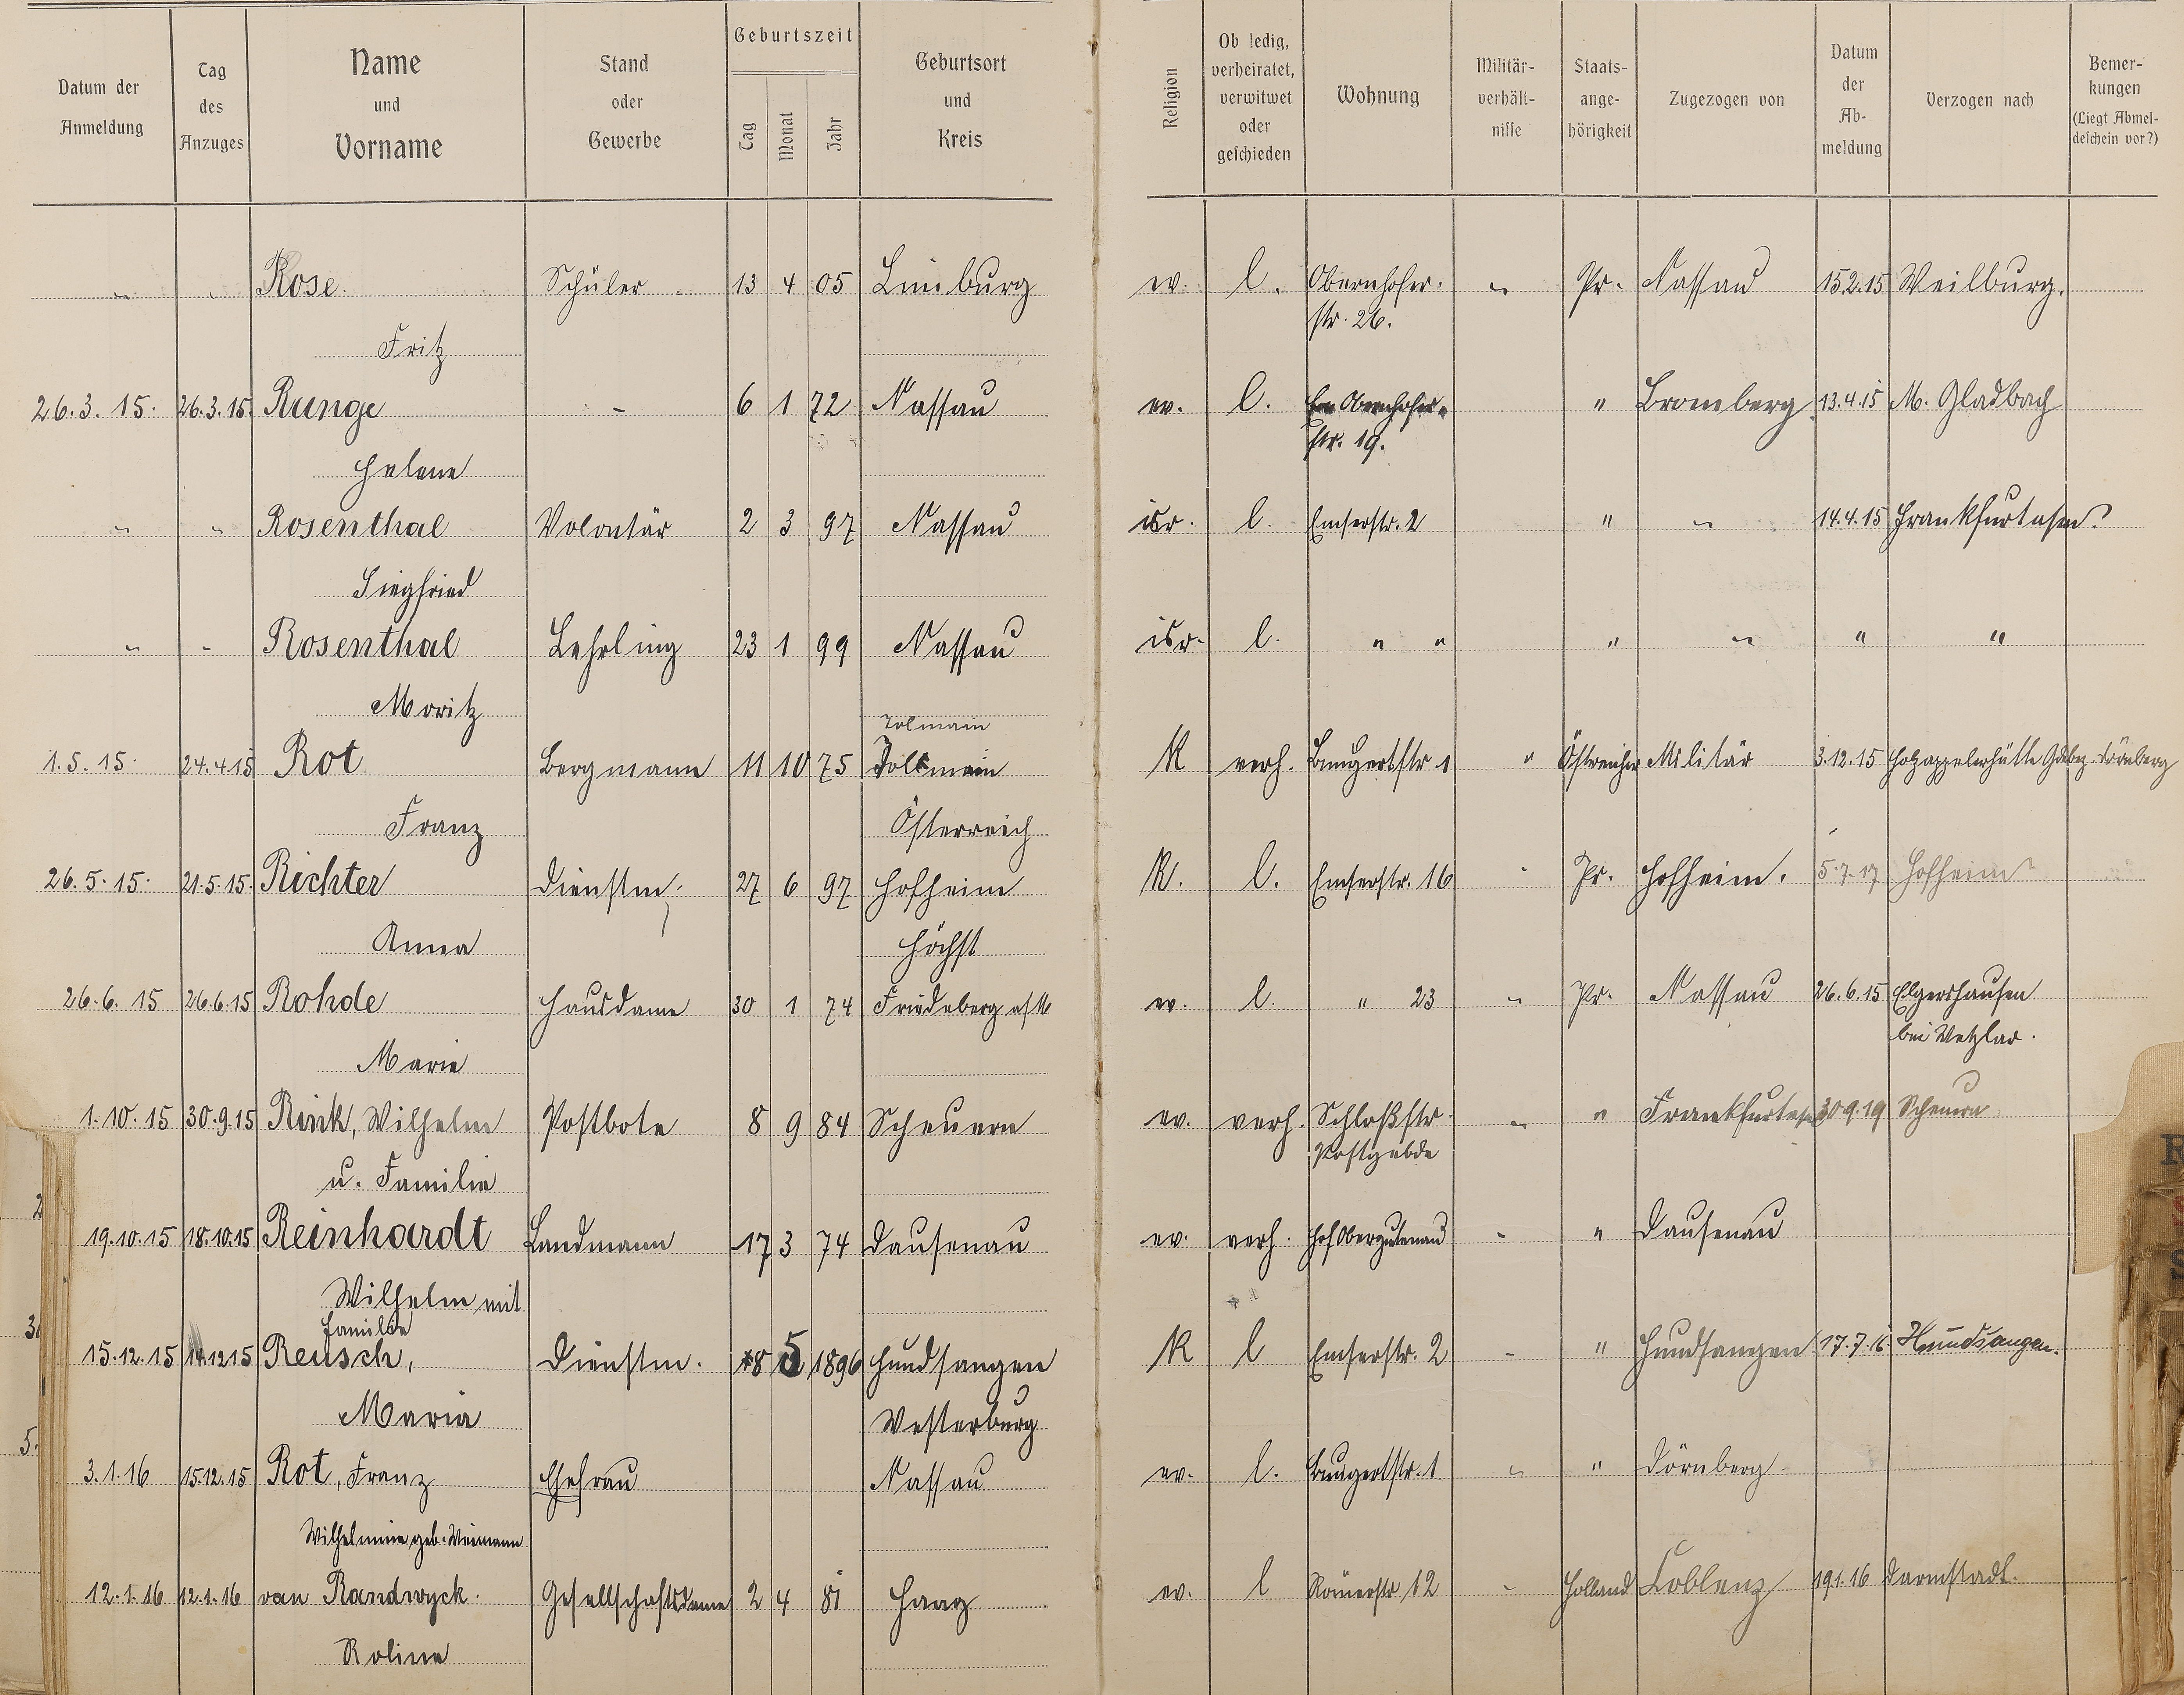 Datum der Anmeldung
Tag des Anzuges
Name und Vorname
Stand oder Gewerbe
Geburtszeit
Tag Monat Jahr
Geburtsort und Kreis
Religion
Ob ledig, verheiratet, verwitwet oder geschieden
Wohnung
Militär-verhält-nisse
Staats-ange-hörigkeit
Zugezogen von
Datum der Ab-meldung
Verzogen nach
Bemer-kungen (Liegt Abmel-deschein vor?)
" " Rose Schüler 13 4 05 Limburg ev. l. Obernhofer- " Pr. Nassau 15.2.15 Weilburg.
Fritz str. 26.
26.3.15. 26.3.15. Runge - 6 1 72 Nassau ev. l. Obernhofer- " Bromberg 13.4.15 M. Gladbach
Helene str. 19.
" " Rosenthal Volontär 2 3 97 Nassau isr. l. Emserstr. 2 " " 14.4.15 Frankfurt a/m.
Siegfried
" " Rosenthal Lehrling 23 1 99 Nassau isr. l. " " " " " "
Moritz
Tolmain
1.5.15. 24.4.15 Rot Bergmann 11 10 75 Tolmein K verh. Bungertstr 1 " Östreicher Militär 3.12.15 Holzappelerhütte Gdebez. Dörnberg
Franz Österreich
26.5.15. 21.5.15. Richter Dienstm. 27 6 97 Hofheim K. l. Emserstr. 16 " Pr. Hofheim. 5.7.17 Hofheim
Anna Höchst
26.6.15 26.6.15 Rohde Hausdame 30 1 74 Friedeberg ev. l. " 23 " Pr. Nassau 26.6.15 Elgershausen
Marie bei Wetzlar.
1.10.15 30.9.15 Rink, Wilhelm Postbote 8 9 84 Scheuern ev. verh. Schloßstr. " " Frankfurt a/m 30.9.19 Scheuern
u. Familie Postgebde
19.10.15 18.10.15 Reinhardt Landmann 17 3 74 Dausenau ev. verh. Hof Obergutenau - " Dausenau
Wilhelm mit
Familie
15.12.15 14.12.15 Reusch, Dienstm. 8 5 1896 Hundsangen K l Emserstr. 2 - " Hundsangen 17.7.16 Hundsangen.
Maria Westerburg
3.1.16 15.12.15 Rot, Franz Ehefrau Nassau ev. l. Bungertstr. 1 " " Dörnberg
Wilhelmine geb. Weimann
12.1.16 12.1.16 van Randwyck. Gesellschaftsdame 2 4 81 Haag ev. l Römerstr. 12 - Holland Coblenz 19.1.16 Darmstadt.
Roline